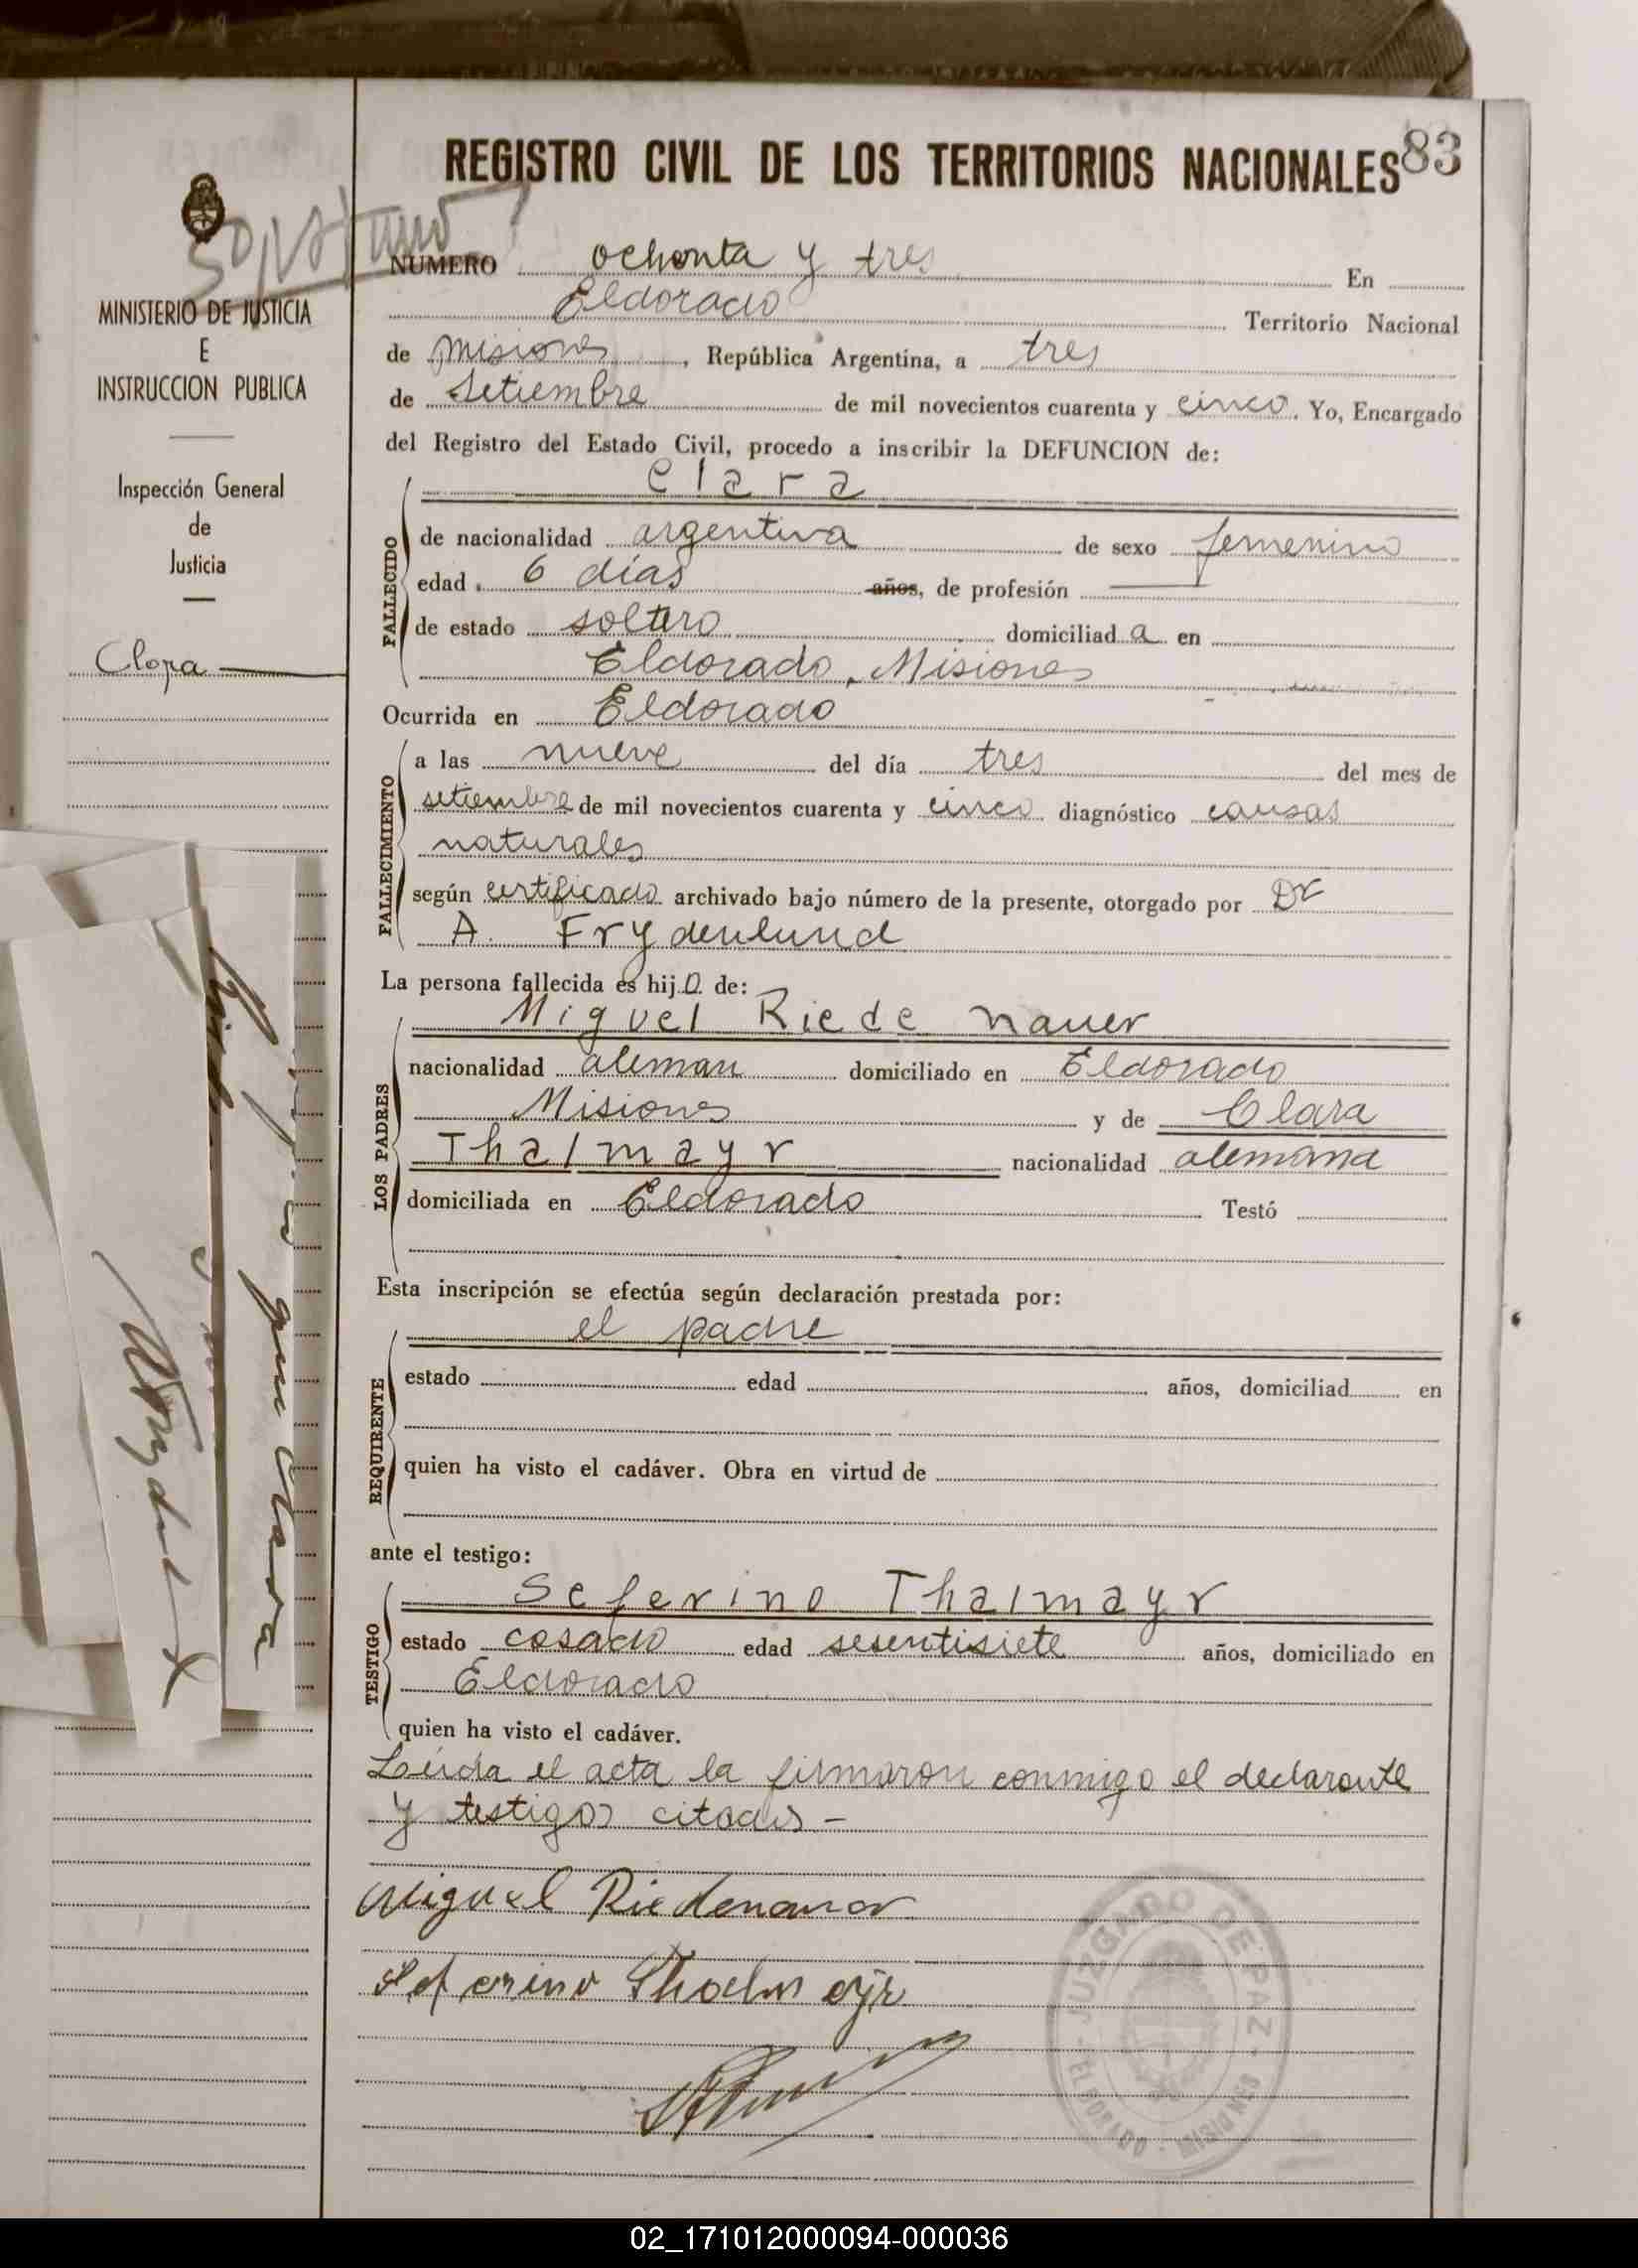 REGISTRO CIVIL DE LOS TERRITORIOS NACIONALES 83
MINISTERIO DE JUSTICIA
E
INSTRUCCION PUBLICA
Inspección General
de
Justicia
Clara
NUMERO ochenta y tres En
Eldorado Territorio Nacional
de Misiones, República Argentina, a tres
de Setiembre de mil novecientos cuarenta y cinco. Yo, Encargado
del Registro del Estado Civil, procedo a inscribir la DEFUNCION de:
Clara
FALLECIDO
de nacionalidad argentina de sexo femenino
edad 6 días años, de profesión
de estado soltero domiciliad a en
Eldorado, Misiones
Ocurrida en Eldorado
FALLECIMIENTO
a las nueve del día tres del mes de
setiembre de mil novecientos cuarenta y cinco diagnóstico causas
naturales
según certificado archivado bajo número de la presente, otorgado por Dr
A. Frydenlund
La persona fallecida es hij a de:
LOS PADRES
Miguel Riede nauer
nacionalidad aleman domiciliado en Eldorado
Misiones y de Clara
Thalmayr nacionalidad alemana
domiciliada en Eldorado Testó
Esta inscripción se efectúa según declaración prestada por:
REQUIRENTE
el padre
estado edad años, domiciliad en
quien ha visto el cadáver. Obra en virtud de
ante el testigo:
TESTIGO
Seferino Thalmayr
estado casado edad sesentisiete años, domiciliado en
Eldorado
quien ha visto el cadáver.
Leída el acta la firmaron conmigo el declarante
y testigos citados -
Miguel Riedenauer
Seferino Thalmayr
JUZGADO DE PAZ
ELDORADO
02_171012000094-000036